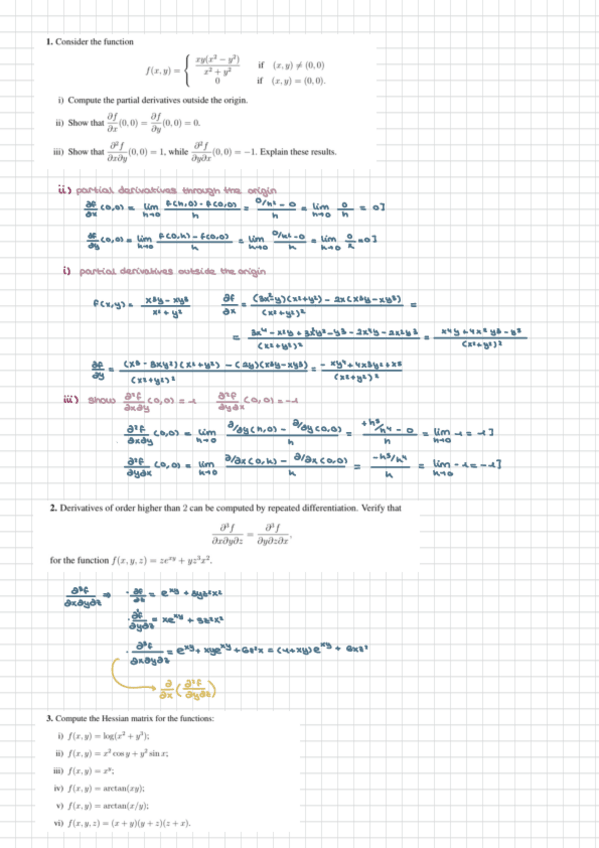 1. Consider the function
f(x, y) = { xy(x² − y²) / x² + y² if (x, y) ≠ (0, 0)
0 if (x, y) = (0, 0).
i) Compute the partial derivatives outside the origin.
ii) Show that ∂f/∂x (0, 0) = ∂f/∂y (0, 0) = 0.
iii) Show that ∂²f/∂x∂y (0, 0) = 1, while ∂²f/∂y∂x (0, 0) = −1. Explain these results.
ii) partial derivatives through the origin
∂f/∂x (0,0) = lim h→0 f(h,0) - f(0,0) / h = 0/h² - 0 / h = lim h→0 0/h = 0]
∂f/∂y (0,0) = lim h→0 f(0,h) - f(0,0) / h = lim h→0 0/h² - 0 / h = lim h→0 0/h = 0]
i) partial derivatives outside the origin
f(x,y) = x³y - xy³ / x² + y² ∂f/∂x = (3x²y)(x²+y²) - 2x(x³y - xy³) / (x²+y²)² =
(x²+y²)²
∂f/∂y = (x³ - 3xy²)(x²+y²) - (2y)(x³y - xy³) / (x²+y²)²
iii) show ∂²f/∂x∂y (0,0) = 1 ∂²f/∂y∂x (0,0) = -1
∂²f/∂x∂y (0,0) = lim h→0 ∂/∂y(h,0) - ∂/∂y(0,0) / h = +h⁵/h⁴ - 0 / h = lim h→0 1 = 1]
∂²f/∂y∂x (0,0) = lim h→0 ∂/∂x(0,h) - ∂/∂x(0,0) / h = -h⁵/h⁴ / h = lim h→0 -1 = -1]
2. Derivatives of order higher than 2 can be computed by repeated differentiation. Verify that
∂³f/∂x∂y∂z = ∂³f/∂y∂z∂x,
for the function f(x, y, z) = ze^xy + yz³x².
∂³f/∂x∂y∂z ⇒ · ∂f/∂z = e^xy + 3yz²x²
· ∂²f/∂y∂z = xe^xy + 3z²x²
· ∂³f/∂x∂y∂z = e^xy + xye^xy + 6z²x = (1+xy)e^xy + 6xz²
∂/∂x (∂²f/∂y∂z)
3. Compute the Hessian matrix for the functions:
i) f(x, y) = log(x² + y³);
ii) f(x, y) = x² cos y + y² sin x;
iii) f(x, y) = x^y;
iv) f(x, y) = arctan(xy);
v) f(x, y) = arctan(x/y);
vi) f(x, y, z) = (x + y)(y + z)(z + x).